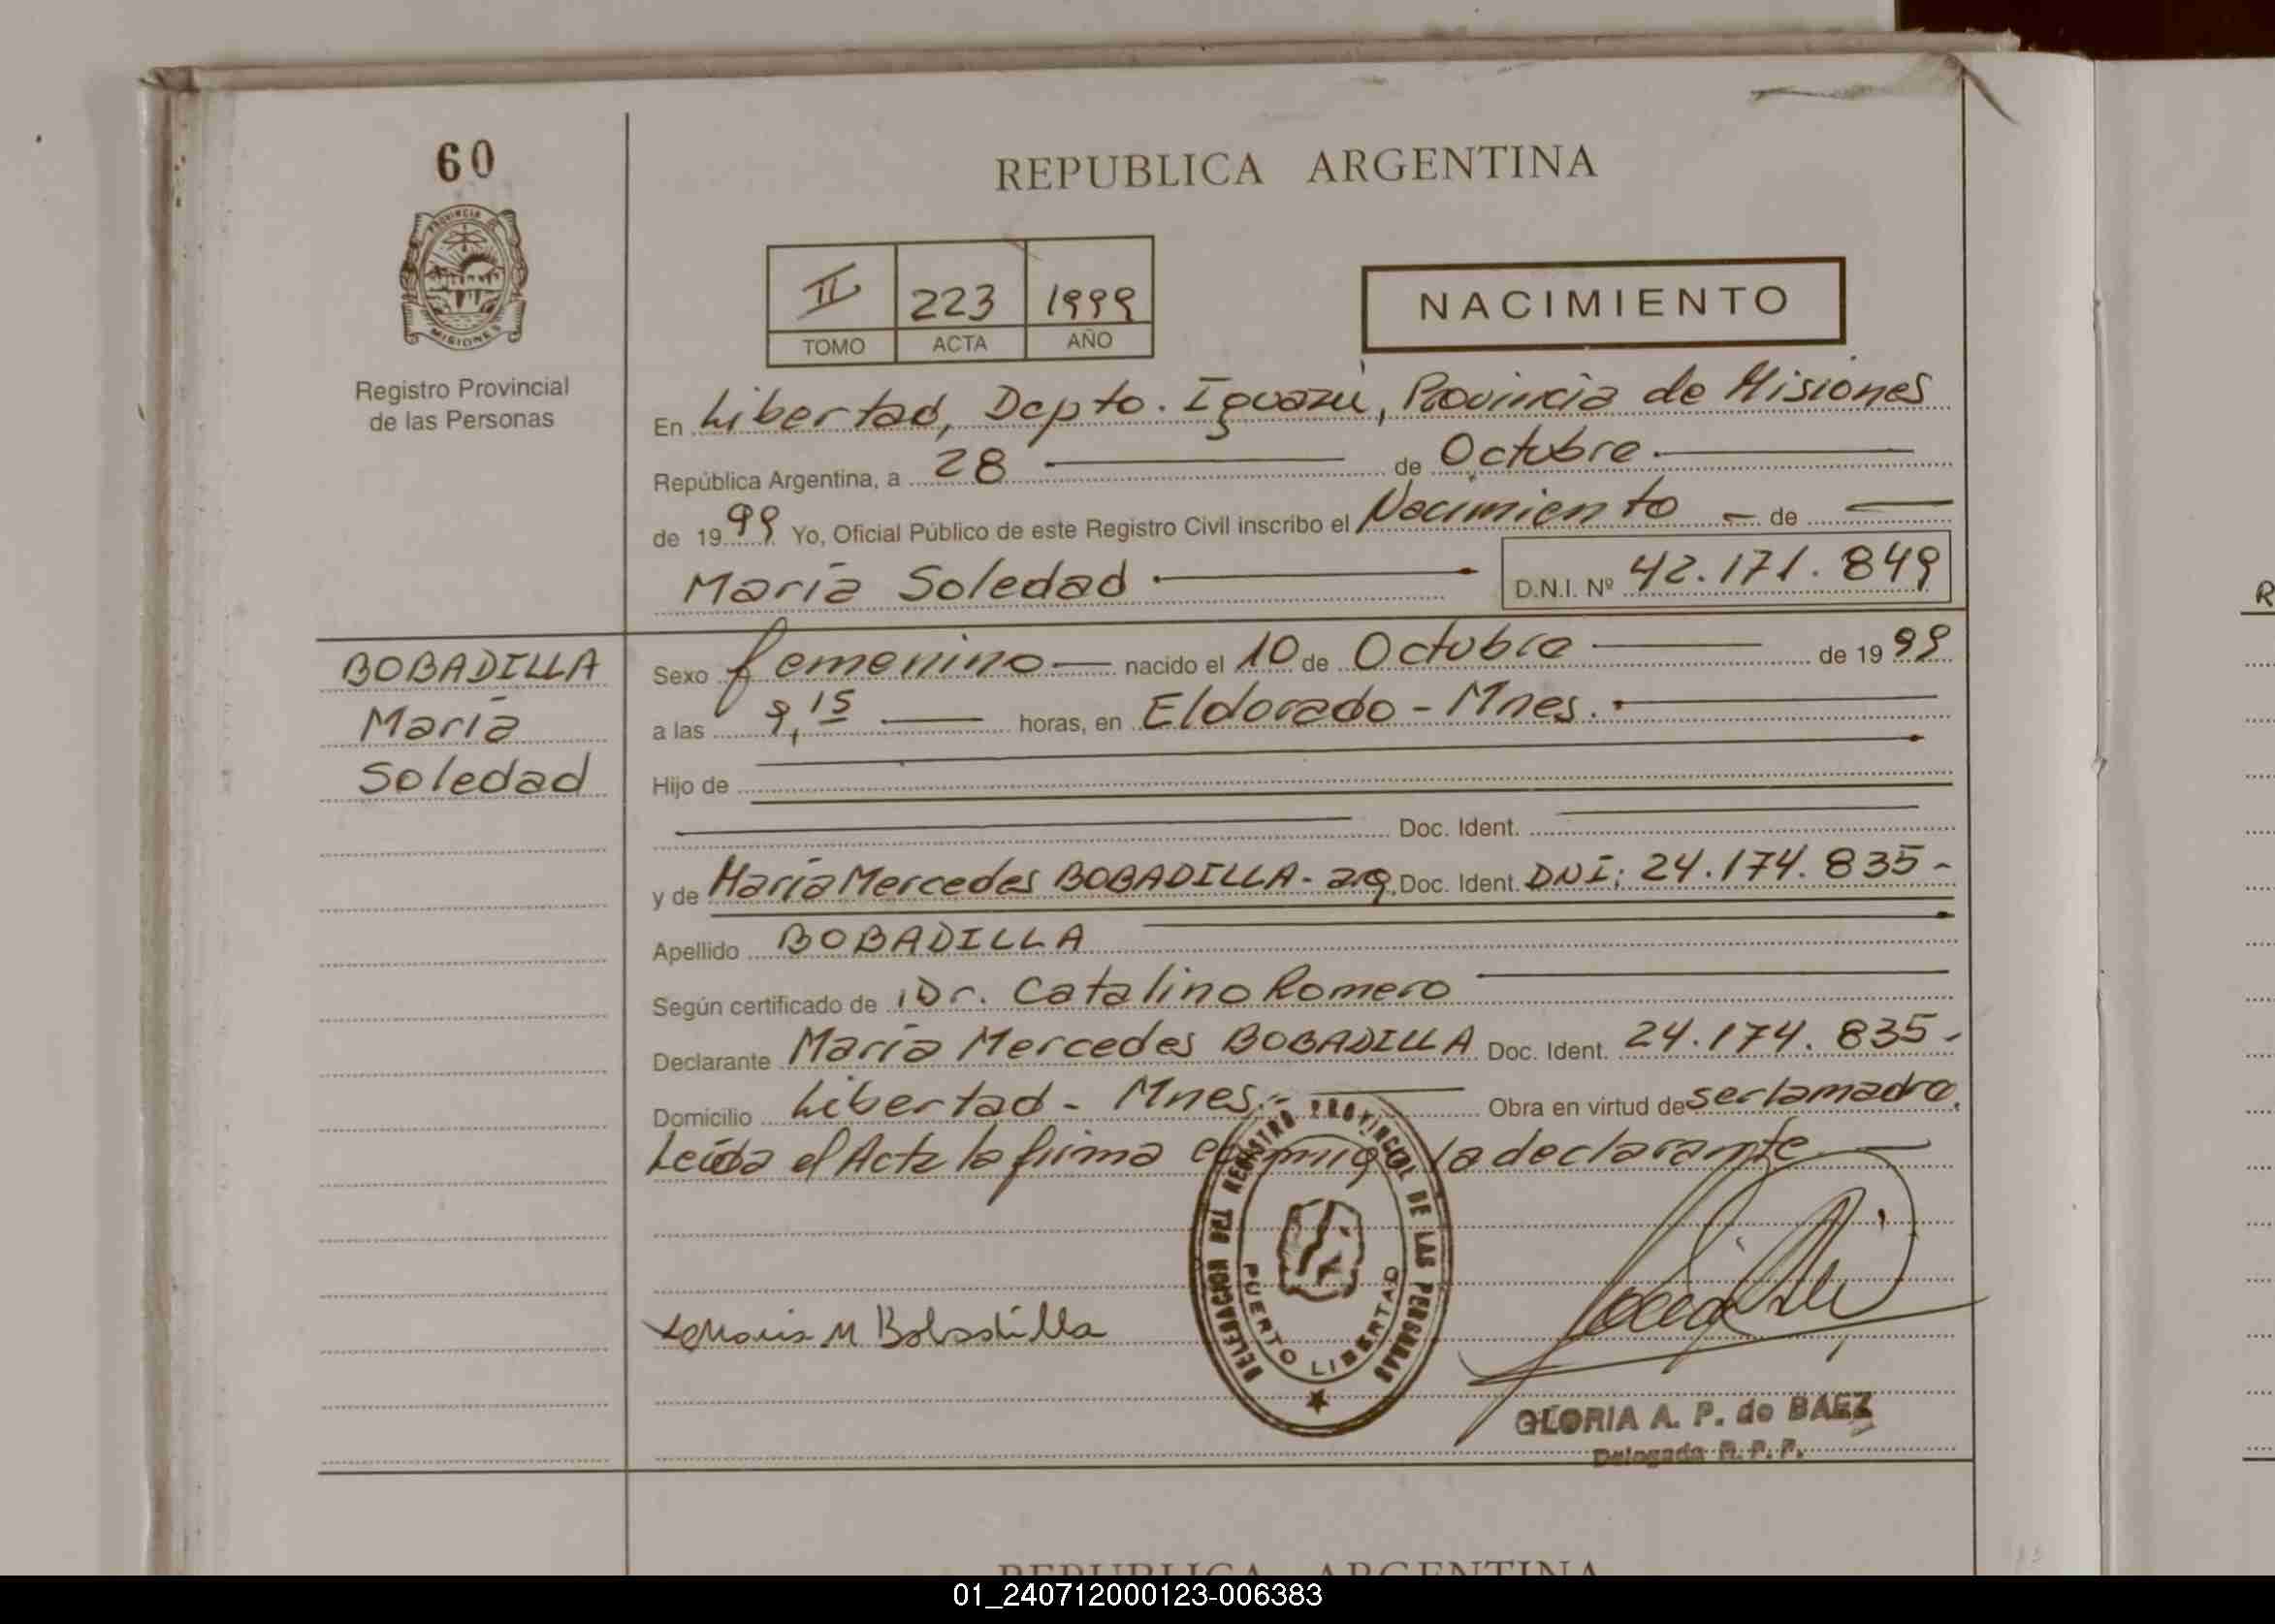 60
PROVINCIA DE
MISIONES
Registro Provincial
de las Personas
REPUBLICA ARGENTINA
II 223 1999
TOMO ACTA AÑO
NACIMIENTO
En Libertad, Depto. Iguazú, Provincia de Misiones
República Argentina, a 28 de Octubre
de 1999 Yo, Oficial Público de este Registro Civil inscribo el Nacimiento de
María Soledad D.N.I. Nº 42.171.849
BOBADILLA
María
Soledad
Sexo femenino nacido el 10 de Octubre de 1999
a las 9,15 horas, en Eldorado - Mnes.
Hijo de
Doc. Ident.
y de María Mercedes BOBADILLA - arg. Doc. Ident. DNI: 24.174.835-
Apellido BOBADILLA
Según certificado de Dr. Catalino Romero
Declarante María Mercedes BOBADILLA Doc. Ident. 24.174.835-
Domicilio Libertad - Mnes.- Obra en virtud de ser la madre.
Leída el Acta la firma conmigo la declarante
DELEGACION DEL REGISTRO PROVINCIAL DE LAS PERSONAS
PUERTO LIBERTAD
M Bobadilla
GLORIA A. P. de BAEZ
Delegada R. P. P.
REPUBLICA ARGENTINA
01_240712000123-006383